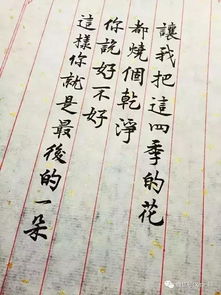 讓我把這四季的花
都燒個乾淨
你說好不好
這樣你就是最後的一朵